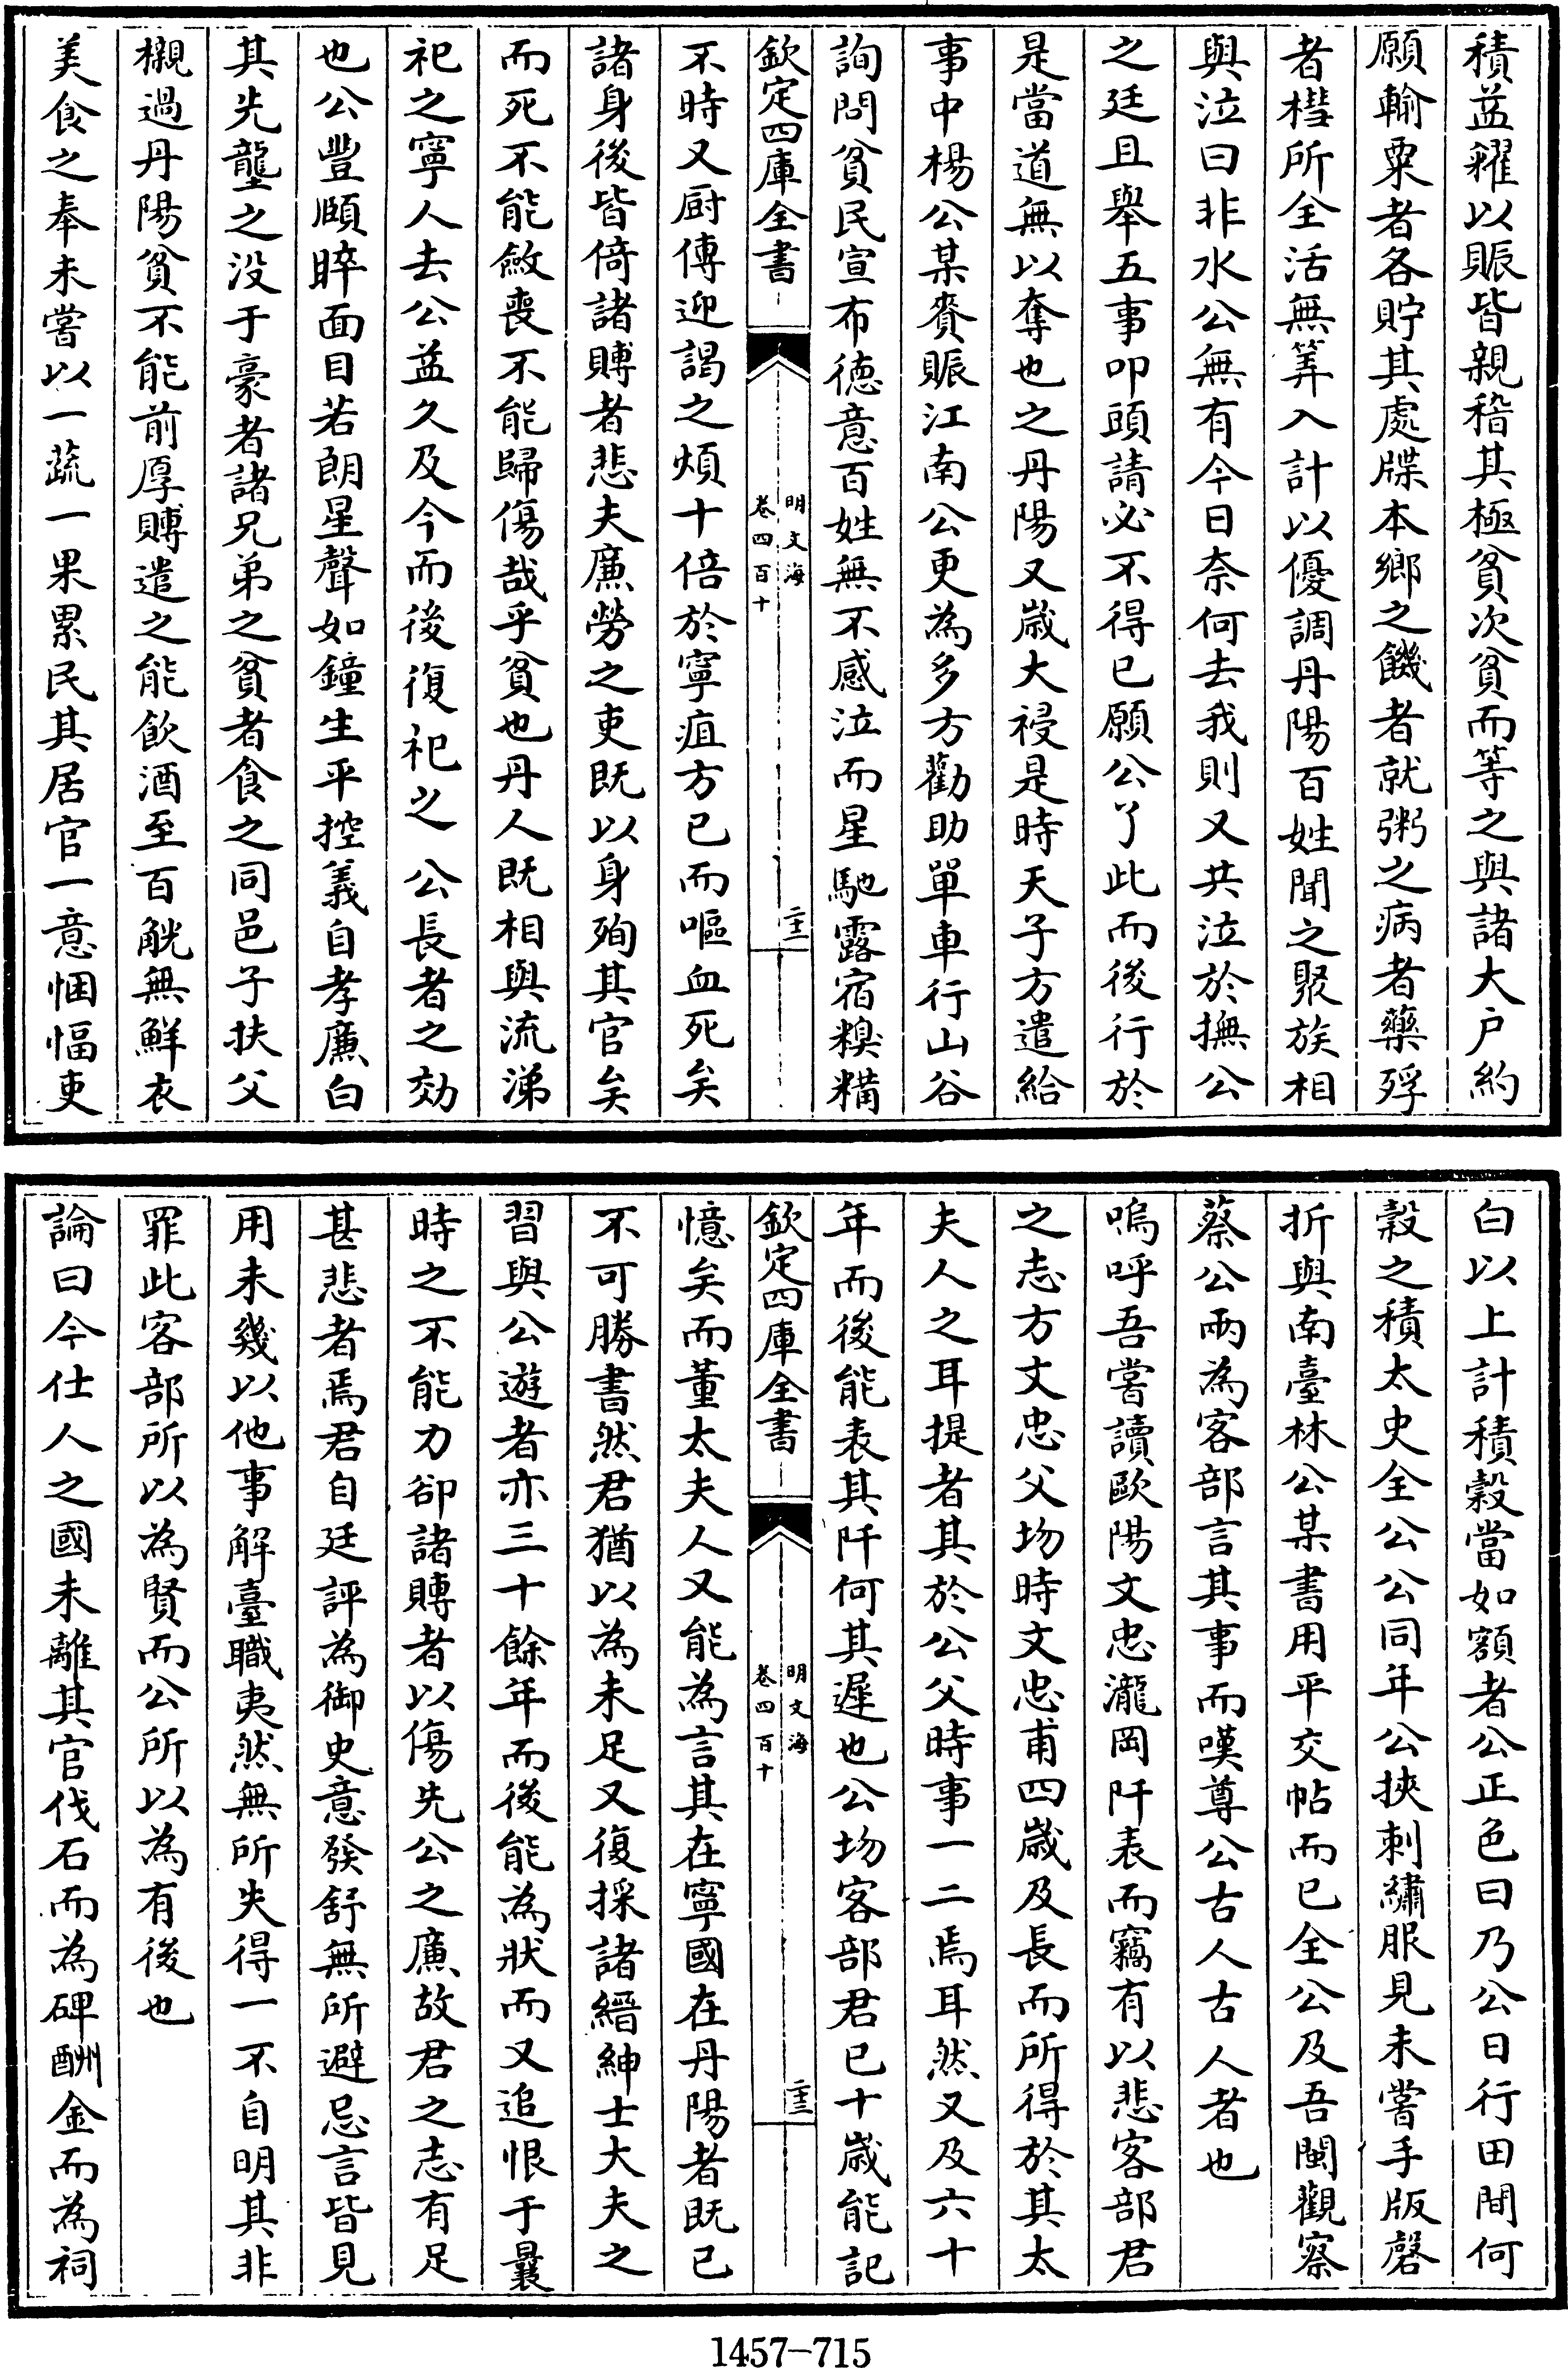 積益糴以賑皆親稽其極貧次貧而等之與諸大户約
願輸粟者各貯其處牒本鄉之饑者就粥之病者藥殍
者槥所全活無筭入計以優調丹陽百姓聞之聚族相
與泣曰非水公無有今日奈何去我則又共泣於撫公
之廷且舉五事叩頭請必不得已願公了此而後行於
是當道無以奪也之丹陽又歲大祲是時天子方遣給
事中楊公某賫賑江南公更為多方勸助單車行山谷
詢問貧民宣布德意百姓無不感泣而星馳露宿糗糒
欽定四庫全書
明文海
卷四百十
不時又厨傳迎謁之煩十倍於寧疽方已而嘔血死矣
諸身後皆倚諸賻者悲夫廉勞之吏既以身殉其官矣
而死不能斂喪不能歸傷哉乎貧也丹人既相與流涕
祀之寧人去公益久及今而後復祀之公長者之効
也公豐頤睟面目若朗星聲如鐘生平控義自孝廉白
其先壟之没于豪者諸兄弟之貧者食之同邑子扶父
櫬過丹陽貧不能前厚賻遣之能飲酒至百觥無鮮衣
美食之奉未嘗以一蔬一果累民其居官一意悃愊吏
白以上計積穀當如額者公正色曰乃公日行田間何
穀之積太史全公公同年公挾刺繡服見未嘗手版磬
折與南臺林公某書用平交帖而已全公及吾閩觀察
蔡公兩為客部言其事而嘆尊公古人古人者也
嗚呼吾嘗讀歐陽文忠瀧岡阡表而竊有以悲客部君
之志方文忠父歿時文忠甫四歲及長而所得於其太
夫人之耳提者其於公父時事一二焉耳然又及六十
年而後能表其阡何其遲也公歿客部君已十歲能記
欽定四庫全書
明文海
卷四百十
憶矣而董太夫人又能為言其在寧國在丹陽者既已
不可勝書然君猶以為未足又復採諸縉紳士大夫之
習與公遊者亦三十餘年而後能為狀而又追恨于曩
時之不能力卻諸賻者以傷先公之廉故君之志有足
甚悲者焉君自廷評為御史意發舒無所避忌言皆見
用未幾以他事解臺職夷然無所失得一不自明其非
罪此客部所以為賢而公所以為有後也
論曰今仕人之國未離其官伐石而為碑酬金而為祠
1457-715